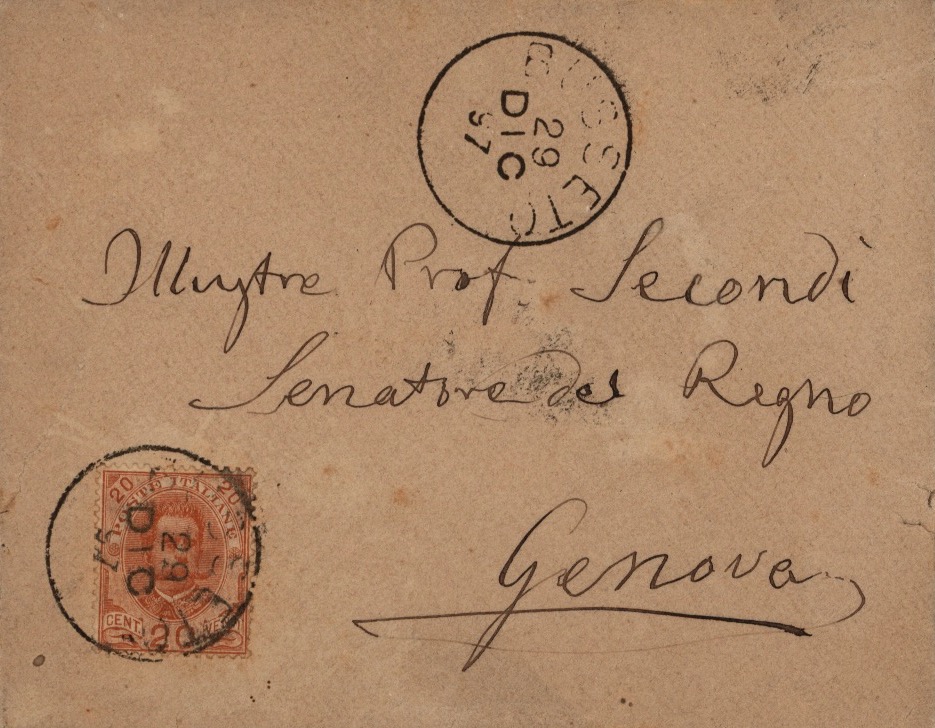 BUSSETO
29
DIC
97
Illustre Prof. Secondi
Senatore del Regno
Genova
20 20
POSTE ITALIANE
29
DIC
97
CENT. 20 VENTI